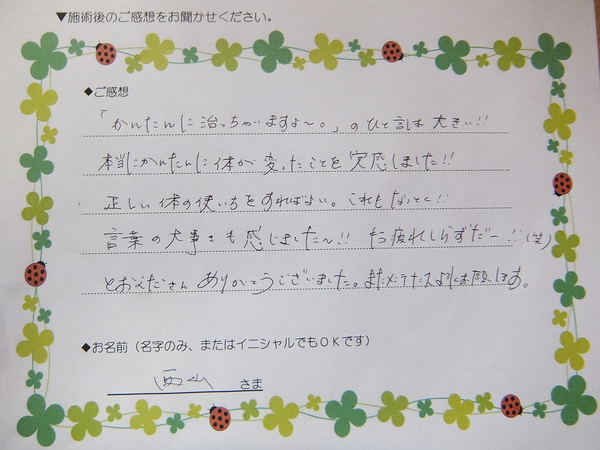 ▼施術後のご感想をお聞かせください。
◆ご感想
「かんたんに治っちゃいますよ～。」のひと言は大きい!!
本当にかんたんに体が変ったことを実感しました!!
正しい体の使い方をすればよい。これもなっとく!!
言葉の大事さも感じました～!! お疲れしらずだー!!(笑)
とおんださん ありがとうございました。またメンテナンスよろしくお願いします。
◆お名前（名字のみ、またはイニシャルでもOKです）
西山 さま